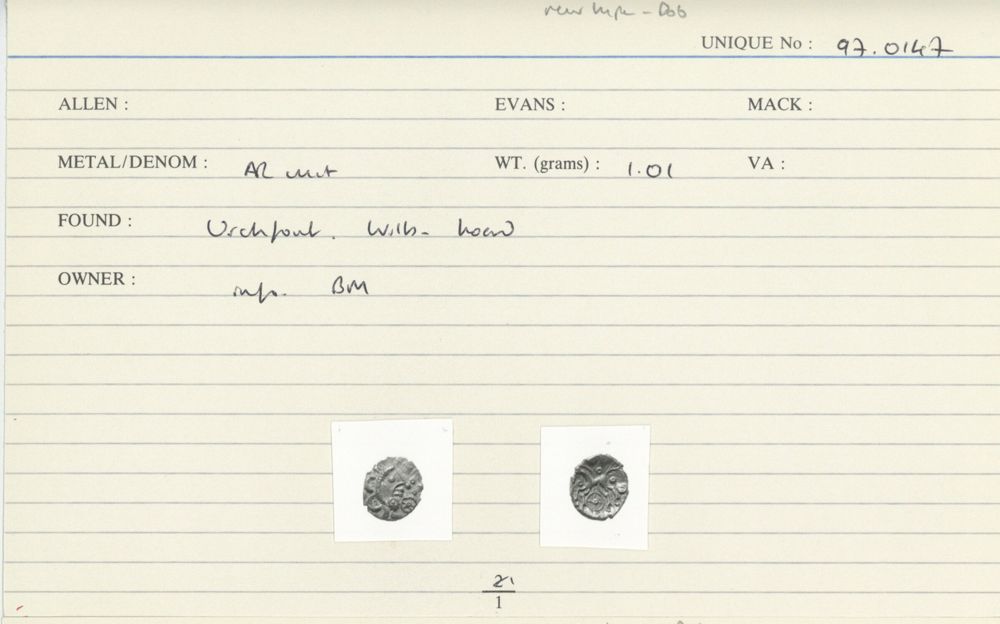 Dob
UNIQUE No : 97.0147
ALLEN : EVANS : MACK :
METAL/DENOM : AR unit WT. (grams) : 1.01 VA :
FOUND : Urchfont. Wilts - hoard
OWNER : info. BM
21
1